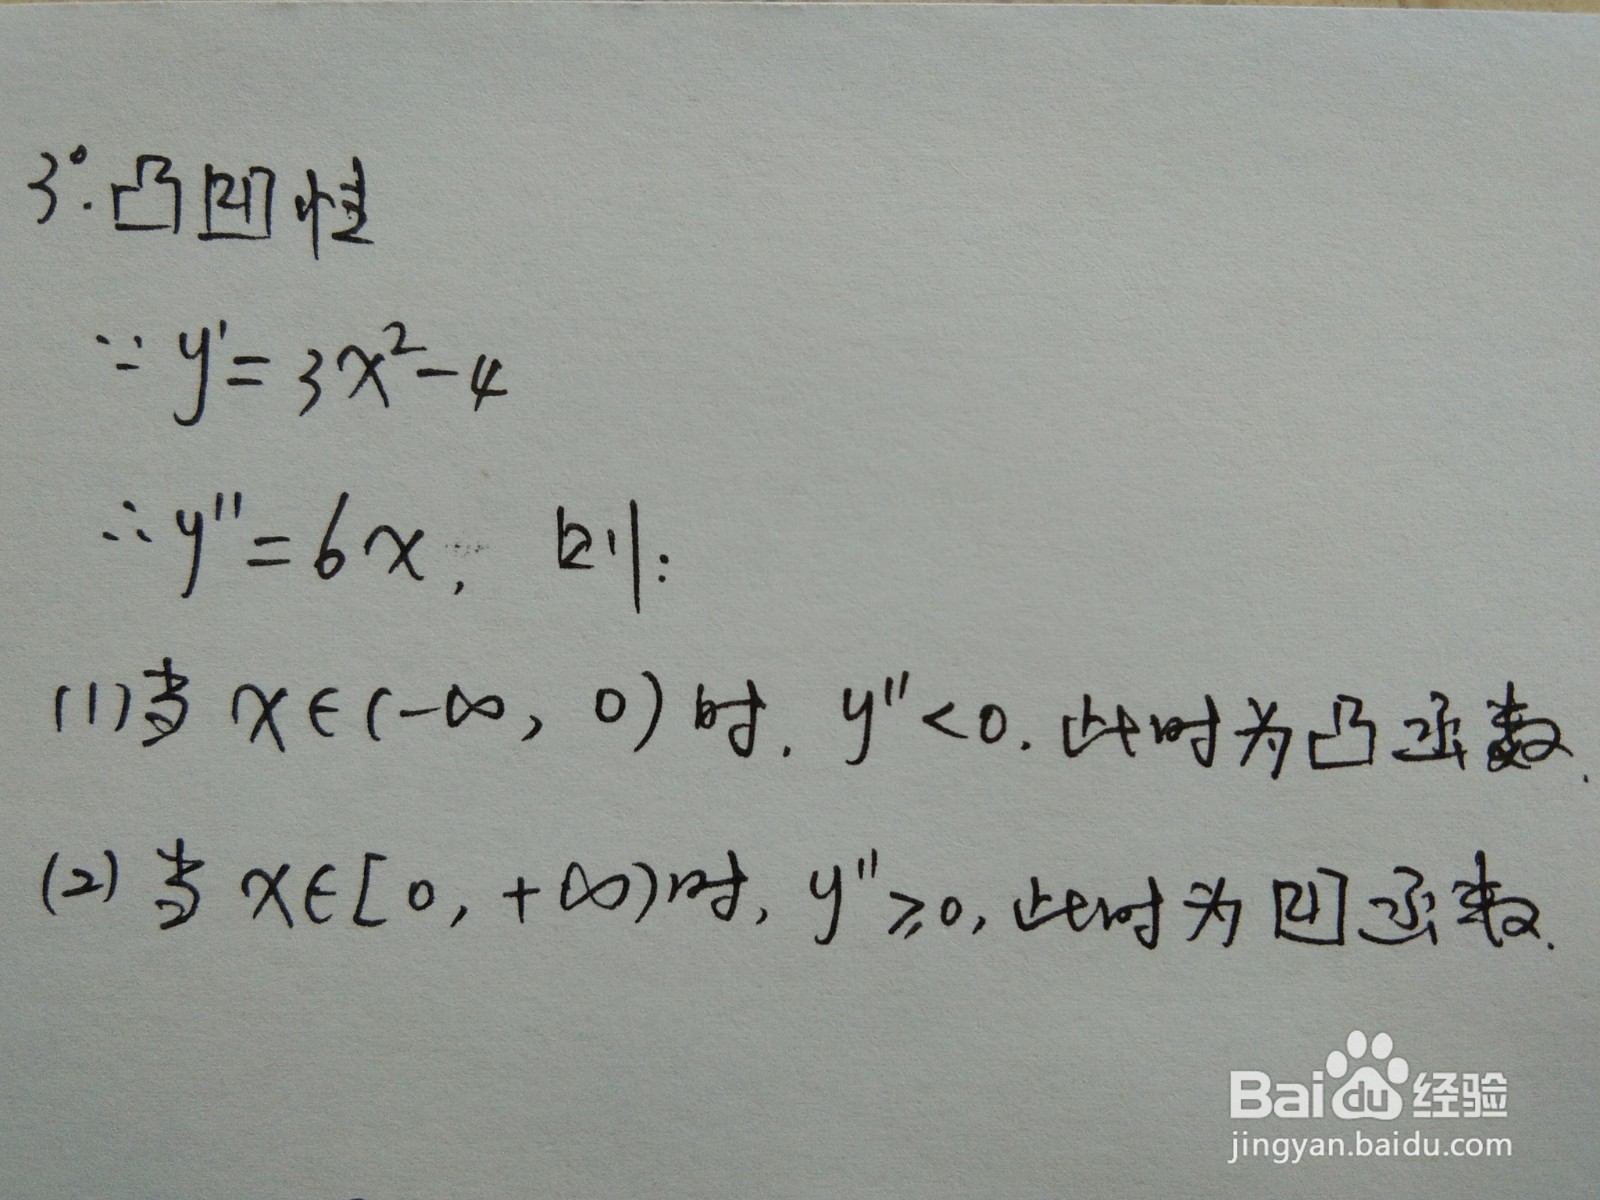 3°.凸凹性
∵ y'=3x²-4
∴ y''=6x, 则:
(1)当 x∈(-∞, 0)时, y''<0. 此时为凸函数.
(2)当 x∈[0, +∞)时, y''≥0, 此时为凹函数.
Baidu经验
jingyan.baidu.com